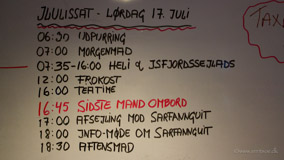 ILULISSAT - LØRDAG 17. JULI
TAX
06:30 UDPURRING
07:00 MORGENMAD
07:35-16:00 HELI & ISFJORDSSEJLADS
12:00 FROKOST
16:00 TEATIME
16:45 SIDSTE MAND OMBORD
17:00 AFSEJLING MOD SARFANNGUIT
18:00 INFO-MØDE OM SARFANNGUIT
18:30 AFTENSMAD